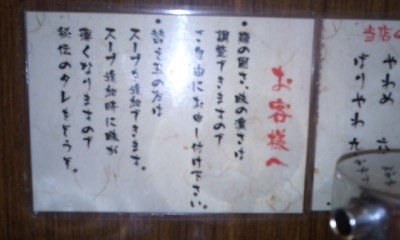 お客様へ
・麺の固さ、味の濃さは
調整できますので
ご自由にお申し付け下さい。
・替え玉の方は
スープも追加できます。
スープ追加時に味が
薄くなりますので
秘伝のタレをどうぞ。
当店の
やわめ
ばりやわ